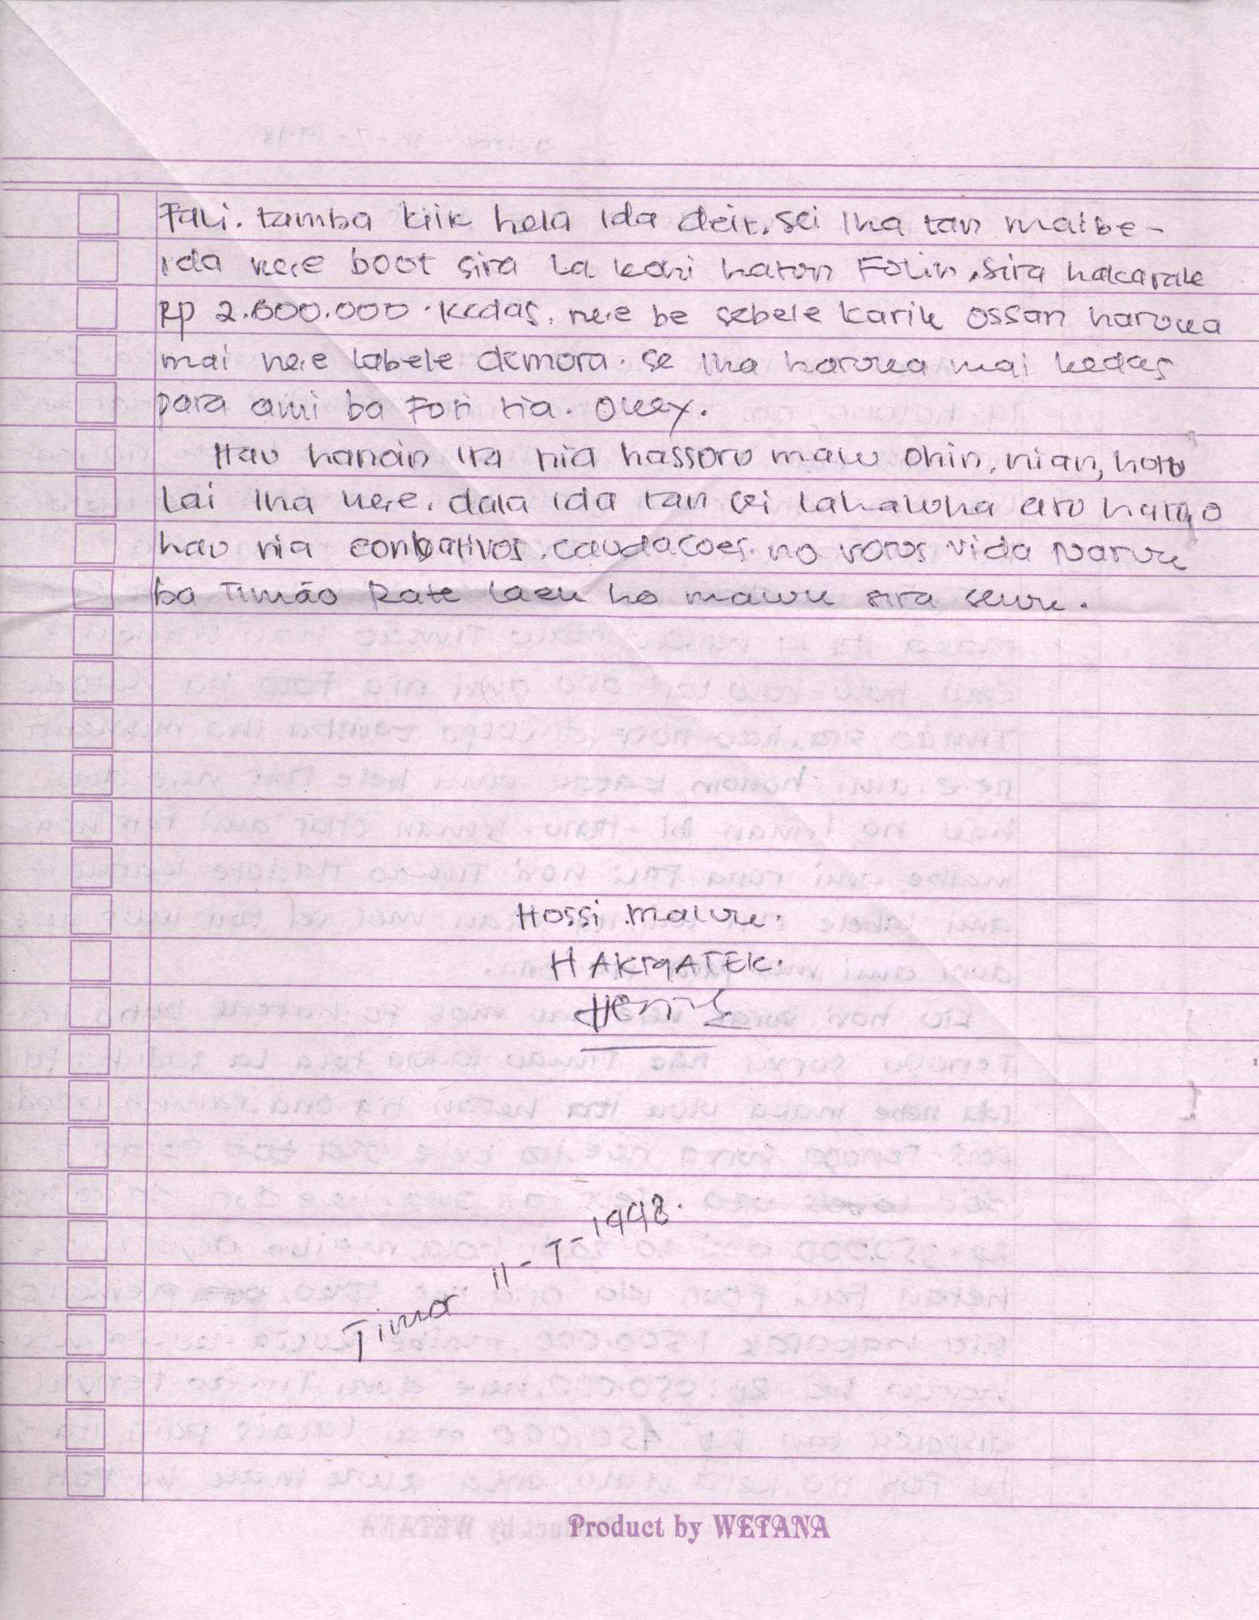 Fali. tamba kiik hela ida deit, sei iha tan maibe-
ida ne.e boot sira la kohi hatun Folin, sira hakarak
Rp 2.600.000. kedas, ne.e be sebele karik ossan haruka
mai ne.e labele demora. se iha haruka mai kedas
para ami ba Foti nia. Okey.
Hau hanoin ita nia hassoru malu ohin, nian, hotu
lai iha ne.e, dala ida tan sei lahaluha atu hato
hau nia conbativos, caudacoes, no votos vida naruk
ba Timão Rate laek ho maluk sira seluk.
Hossi maluk.
HAKMATEK.
Timor 11-7-1998.
Product by WETANA